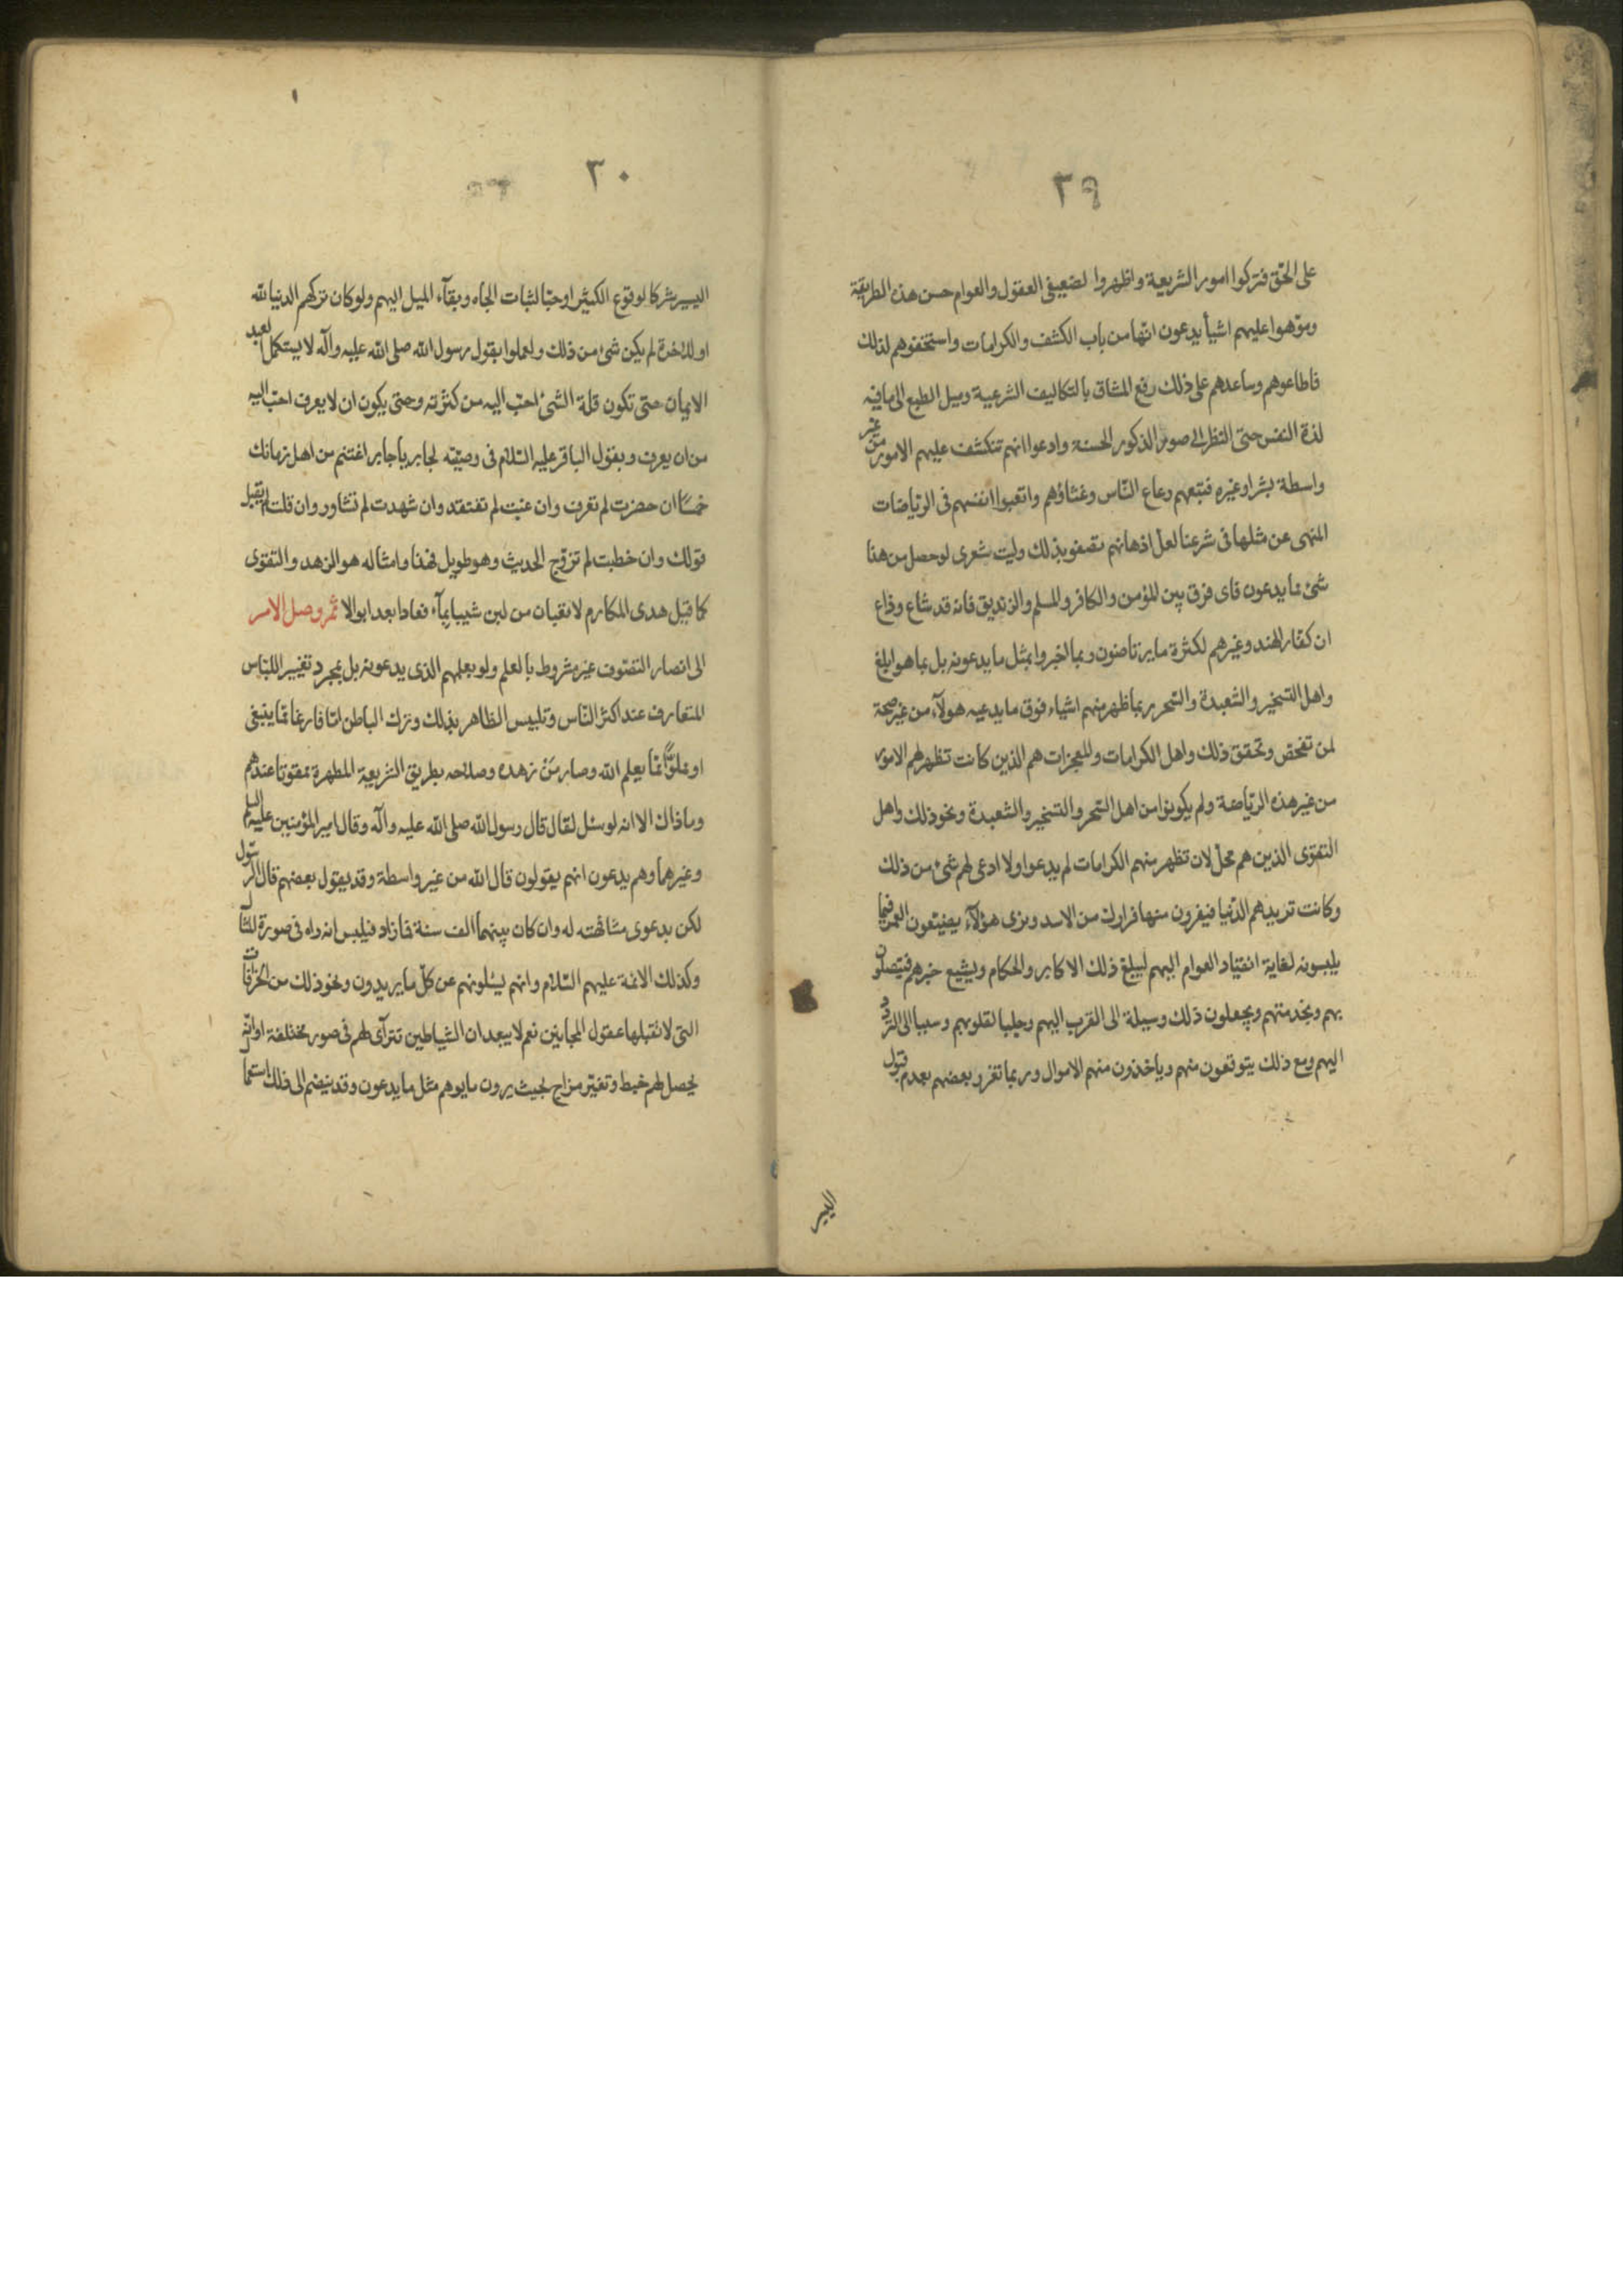 ٢٩
على الحق فتركوا امور الشريعة واظهروا لضعيفى العقول والعوام حسن هذه الطريقة
وموّهوا عليهم اشيأ يدعون انّها من باب الكشف والكرامات واستخفوهم لذلك
فاطاعوهم وساعدهم على ذلك رفع المشاق بالتكاليف الشرعية وميل الطبع الى ما فيه
لذة النفس حتى النظر الى صور الذكور الحسنة وادعوا انهم تنكشف عليهم الامور من غير
واسطة بشر او غيره فتبعهم رعاع النّاس وغثاؤهم واتعبوا انفسهم فى الرّياضات
المنهى عن مثلها فى شرعنا لعلّ اذهانهم تصفو بذلك وليت شعرى لو حصل من هذا
شئ مما يدعون فاى فرق بين المؤمن والكافر والمسلم والزنديق فانه قد شاع وذاع
ان كفار الهند وغيرهم لكثرة ما يرتاضون ربما اخبروا بمثل ما يدعونه بل بما هو ابلغ
واهل التسخير والشعبدة والسّحر ربما ظهر منهم اشياء فوق ما يدعيه هولآء من غير صحة
لمن تفحّص وتحقق ذلك واهل الكرامات والمعجزات هم الذين كانت تظهر لهم الامور
من غير هذه الرّياضة ولم يكونوا من اهل السّحر والتسخير والشعبدة ونحو ذلك واهل
التقوى الذين هم محلّ لان تظهر منهم الكرامات لم يدعوا ولا ادعى لهم شئ من ذلك
وكانت تريدهم الدّنيا فيفرون منها فرارك من الاسد ونرى هؤلآء يضيّعون العمر فيما
يلبسونه لغاية انقياد العوام اليهم ليبلغ ذلك الاكابر والحكام ويشيع خبرهم فيتصلون
بهم وبخدمتهم ويجعلون ذلك وسيلة الى القرب اليهم وجلبا لقلوبهم وسببا الى التردّد
اليهم ومع ذلك يتوقعون منهم ويأخذون منهم الاموال وربما تغرر بعضهم بعدم قبول
اليسير
٣٠
اليسير شركا لوقوع الكثير او حبّا لثبات الجاه وبقآء الميل اليهم ولو كان تركهم الدنيا لله
او للاخرة لم يكن شئ من ذلك ولعملوا بقول رسول الله صلى الله عليه وآله لا يستكمل العبد
الايمان حتى تكون قلة الشئ احبّ اليه من كثرته وحتى يكون ان لا يعرف احبّ اليه
من ان يعرف وبقول الباقر عليه السّلام فى وصيّته لجابر يا جابر اغتنم من اهل زمانك
خمسًا ان حضرت لم تعرف وان غبت لم تفتقد وان شهدت لم تشاور وان قلت لم يقبل
قولك وان خطبت لم تزوّج الحديث وهو طويل فهذا وامثاله هو الزهد والتقوى
كما قيل هدى المكارم لا قعبان من لبن شيبا بمآء فعادا بعد ابوالا ثمّ وصل الامر
الى انصار التصّوف غير مشروط بالعلم ولو بعلمهم الذى يدعونه بل بمجرد تغيير اللباس
المتعارف عند اكثر النّاس وتلبيس الظاهر بذلك وترك الباطن امّا فارغا ممّا ينبغى
او مملوّا ممّا يعلم الله وصار مَنْ زهده وصلاحه بطريق الشريعة المطهرة ممقوتا عندهم
وما ذاك الا انه لو سئل لقال قال رسول الله صلى الله عليه وآله وقال امير المؤمنين عليه السلم
وغيرهما وهم يدعون انهم يقولون قال الله من غير واسطة وقد يقول بعضهم قال الرّسول
لكن بدعوى مشافهته له وان كان بينهما الف سنة فما زاد فيلبس انه راه فى صورة لمثا
وكذلك الائمة عليهم السّلام وانهم يسئلونهم عن كلّ ما يريدون ونحو ذلك من الخرافات
التى لا تقبلها عقول المجانين نعم لا يبعد ان الشياطين تترآى لهم فى صور مختلفة او انّه
يحصل لهم خبط وتغيّر مزاج بحيث يرون ما يوهم مثل ما يدعون وقد ينضم الى ذلك استعما